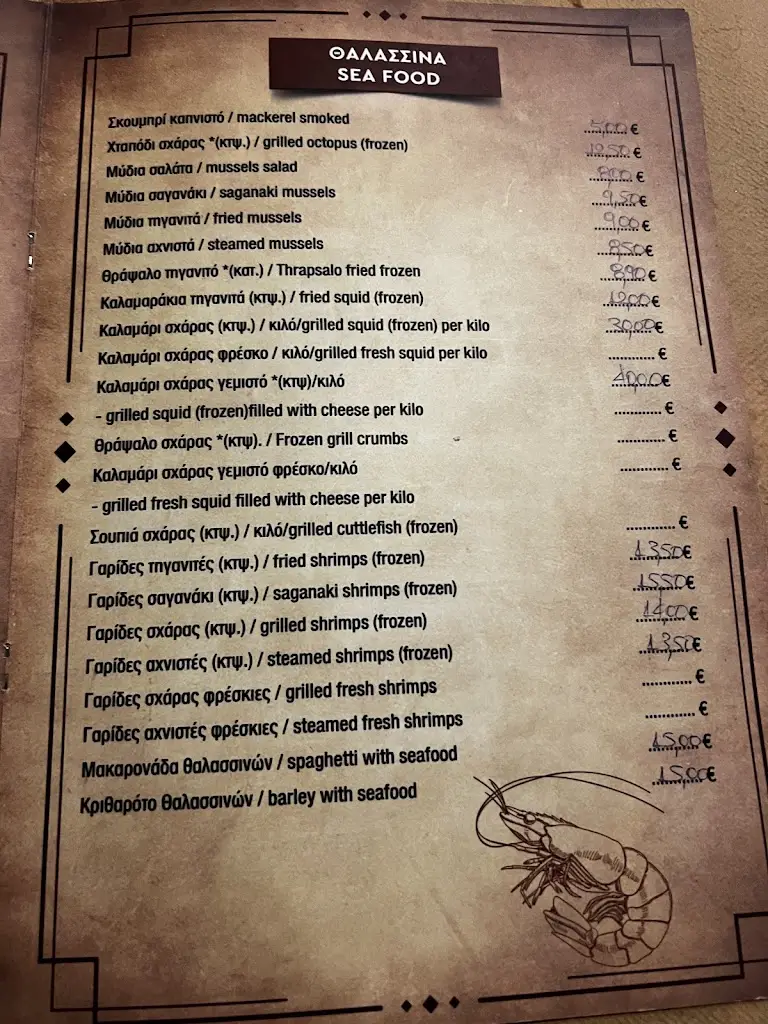 ΘΑΛΑΣΣΙΝΑ
SEA FOOD
Σκουμπρί καπνιστό / mackerel smoked 5,00 €
Χταπόδι σχάρας *(κτψ.) / grilled octopus (frozen) 12,50 €
Μύδια σαλάτα / mussels salad 8,00 €
Μύδια σαγανάκι / saganaki mussels 9,50 €
Μύδια τηγανιτά / fried mussels 9,00 €
Μύδια αχνιστά / steamed mussels 8,50 €
Θράψαλο τηγανιτό *(κατ.) / Thrapsalo fried frozen 8,90 €
Καλαμαράκια τηγανιτά (κτψ.) / fried squid (frozen) 12,00 €
Καλαμάρι σχάρας (κτψ.) / κιλό/grilled squid (frozen) per kilo 30,00 €
Καλαμάρι σχάρας φρέσκο / κιλό/grilled fresh squid per kilo ............ €
Καλαμάρι σχάρας γεμιστό *(κτψ)/κιλό 40,00 €
- grilled squid (frozen)filled with cheese per kilo ............ €
Θράψαλο σχάρας *(κτψ). / Frozen grill crumbs ............ €
Καλαμάρι σχάρας γεμιστό φρέσκο/κιλό ............ €
- grilled fresh squid filled with cheese per kilo
Σουπιά σχάρας (κτψ.) / κιλό/grilled cuttlefish (frozen) ............ €
Γαρίδες τηγανιτές (κτψ.) / fried shrimps (frozen) 13,50 €
Γαρίδες σαγανάκι (κτψ.) / saganaki shrimps (frozen) 15,50 €
Γαρίδες σχάρας (κτψ.) / grilled shrimps (frozen) 14,00 €
Γαρίδες αχνιστές (κτψ.) / steamed shrimps (frozen) 13,50 €
Γαρίδες σχάρας φρέσκιες / grilled fresh shrimps ............ €
Γαρίδες αχνιστές φρέσκιες / steamed fresh shrimps ............ €
Μακαρονάδα θαλασσινών / spaghetti with seafood 15,00 €
Κριθαρότο θαλασσινών / barley with seafood 15,00 €